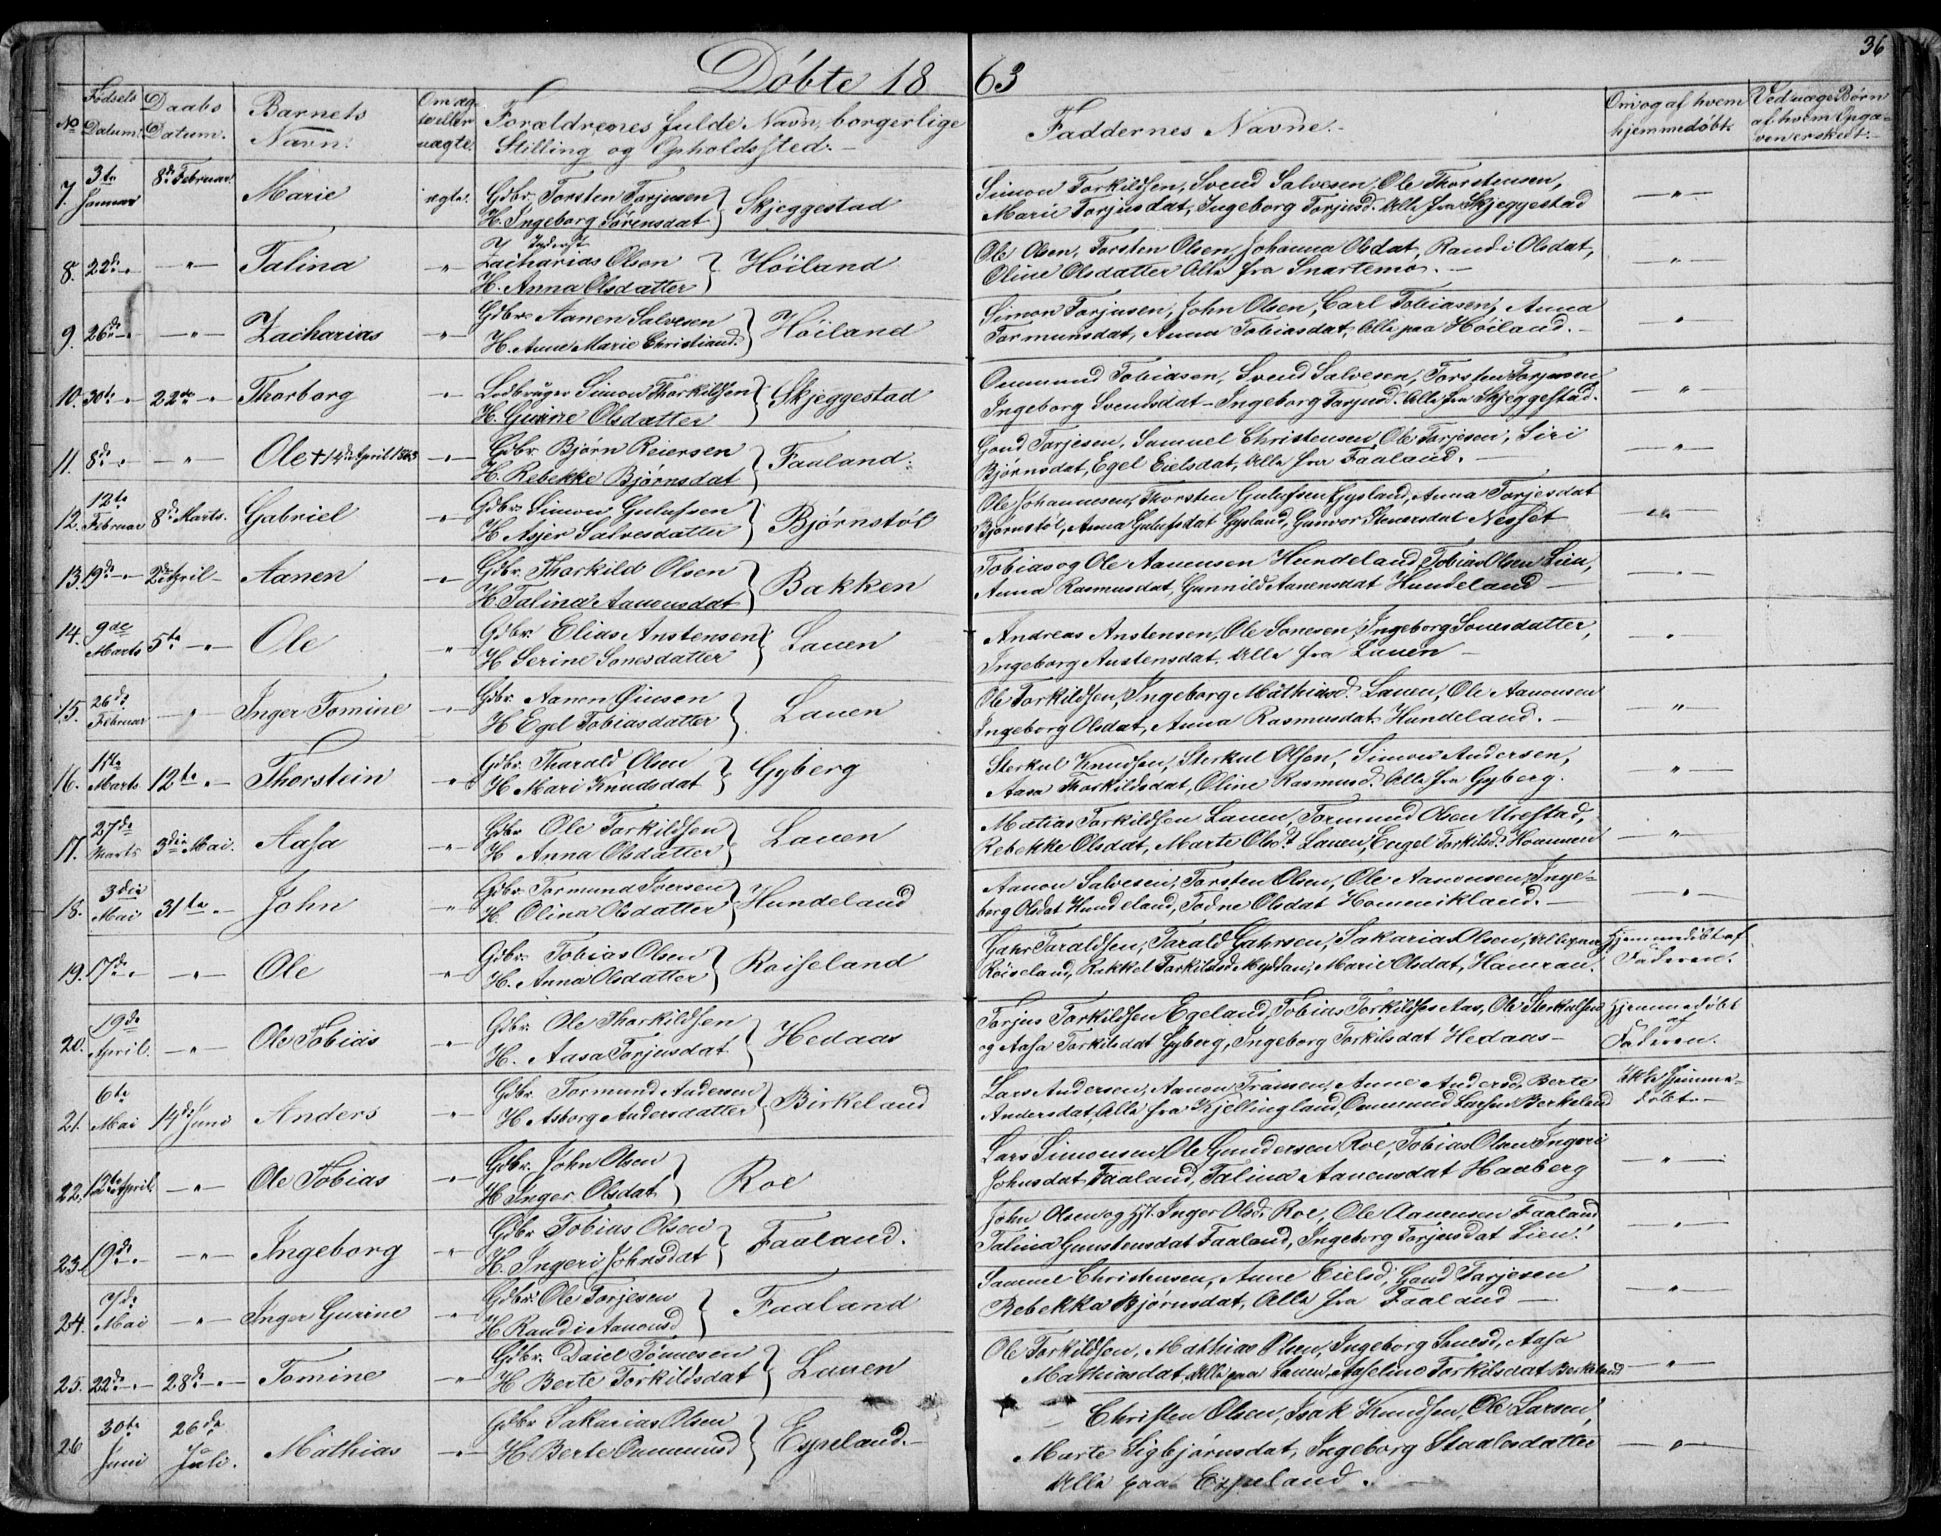 36
Döbte 1863
No
Fødsels Datum.
Daabs Datum.
Barnets Navn.
Om ægte eller uægte.
Forældrenes fulde Navn, borgerlige Stilling og Opholdssted.
Faddernes Navne.
Om og af hvem hjemmedøbt.
Ved uægte Børn af hvem Opgaven er skedt.
7. 3te Januar 8de Februar. Marie ægte. Gdbr. Torsten Torjusen
H. Ingeborg Sørensdat } Skjeggestad
Simon Torkildsen, Svend Salvesen, Ole Thorstensen,
Marie Torjusdat, Ingeborg Torjusd. Alle fra Skjeggestad
8. 22de " — " — Talina — " Inderst Zacharias Olsen
H. Anna Olsdatter } Höiland
Ole Olsen, Torsten Olsen, Johanna Olsdat, Randi Olsdat,
Oline Olsdatter Alle fra Snartemo.
9. 26de " — " — Zacharias — " Gdbr. Aanen Salvesen
H. Anne Marie Christiansd. } Höiland
Simon Torjusen, John Olsen, Carl Tobiasen, Anna
Tormunsdat, Anna Tobiasdat, Alle paa Höiland.
10. 30te " 22de " Thorborg — " Lodbruger Simon Thorkildsen
H. Gurine Olsdatter } Skjeggestad
Onmund Tobiasen, Svend Salvesen, Torsten Torjusen
Ingeborg Svendsdat — Ingeborg Torjusd. Alle fra Skjeggestad.
11. 8de " — " — Ole † 14de April 1863 — " Gdbr. Björn Reiersen
H. Rebekke Björnsdat } Faaland.
Gaud Torjesen, Samuel Christensen, Ole Torjesen, Siri
Björnsdat, Egel Eielsdat, Alle fra Faaland.
12. 12te Februar 8de Marts. Gabriel — " Gdbr. Simon Gulufsen
H. Asjer Salvesdatter } Björnstöl
Ole Johannesen, Thorsten Gulufsen Gysland, Anna Torjesdat
Björnstöl, Anna Gulufsdat Gysland, Gunvor Stenersdat Nesset
13. 19de — " — 2de April — Aanen — " Gdbr. Thorkild Olsen
H. Talina Aanensdat } Bakken
Tobias og Ole Aanensen Hundeland Tobias Olsen Lien,
Anna Rasmusdat, Gunnild Aanensdat Hundeland
14. 9de Marts 5te — " — Ole " Gdbr. Elias Anstensen
H Serine Sonesdatter } Lauen
Andreas Anstensen, Ole Sonesen, Ingeborg Sonesdatter,
Ingeborg Anstensdat. Alle fra Lauen
15. 26de Februar — " — Inger Tomine — " Gdbr. Aanen Øiusen
H Egel Tobiasdatter } Lauen
Ole Torkildsen, Ingeborg Mathiasd. Lauen, Ole Aanonsen
Ingeborg Olsdat, Anna Rasmusdat Hundeland.
16. 11te Marts 12te " — Thorstein — " Gdbr. Tharald Olsen
H Mari Knudsdat } Gyberg
Sterkul Knudsen, Sterkul Olsen, Simon Andersen,
Aasa Thorkildsdat, Oline Rasmusd. Alle fra Gyberg.
17. 27de Marts 3die Mai. Aasa — " Gdbr Ole Torkildsen
H Anna Olsdatter } Lauen
Matias Torkildsen Lauen, Tormund Olsen Urestad,
Rebekke Olsdat, Marte Olsdt. Lauen, Engel Torkilsd. Hommen
18. 3die Mai 31te — John — " Gdbr. Tormund Iversen
H. Olina Olsdatter } Hundeland
Aanon Salvesen, Torsten Olsen, Ole Aanonsen, Inge-
borg Olsdat Hundeland, Todne Olsdat Kommikland.
19. 17de — " — " — Ole " Gdbr. Tobias Olsen
H. Anna Olsdatter } Roiseland
Gahr Taraldsen, Tarald Gahrsen, Sakarias Olsen, Alle paa
Roiseland, Rakkel Torkildsd. Mydlan, Marie Olsdat, Hamran.
Hjemmedöbt af Faderen.
20. 19de April. — " — Ole Tobias — " Gdbr. Ole Thorkildsen
H. Aasa Torjusdat } Hedaas
Torjus Torkildsen Egeland, Tobias Torkildsen Aas, Ole Sterkulsen
og Aasa Torkilsdat Gyberg, Ingeborg Torkilsdat Hedaas
Hjemmedöbt af Faderen.
21. 6te Mai 14de Juni Anders — " Gdbr Tormund Andersen
H Asborg Andersdatter } Birkeland
Lars Andersen, Aanon Tronsen, Anne Andersd, Berte
Andersdat, Alle fra Kjellingland, Onmund Larsen Berkeland
Ikke Hjemme-
döbt.
22. 12te April. — " — Ole Tobias — " Gdbr. John Olsen
H Inger Olsdat } Roe
Lars Simonsen, Ole Gundersen Roe, Tobias Olsen, Ingeri
Johnsdat Faaland, Talina Aanensdat Haaberg
23. 19de " — " — Ingeborg — " Gdbr Tobias Olsen
H. Ingeri Johnsdat } Faaland.
John Olsen og Hst. Inger Olsd. Roe, Ole Aanensen Faaland
Talina Gunstensdat Faaland, Ingeborg Torjusdat Lien.
24. 7de Mai — " — Inger Gurine — " Gdbr. Ole Torjesen
H Randi Aanonsd } Faaland
Samuel Christensen, Anne Eielsd, Gaud Torjesen
Rebekka Björnsdat, Alle fra Faaland
25. 22de — " 28de — " Tomine — " Gdbr. Daiel Tönnesen
H Berte Torkildsdat } Lauen
Ole Torkildsen, Mathias Olsen, Ingeborg Sonesd, Aasa
Mathiasdat, Alle paa Lauen, Aaseline Torkilsdat Berkeland
26 30te Juni 26de Juli. Mathias — " Gdbr Sakarias Olsen
H Berte Onmunsd } Espeland.
Christen Olsen, Isak Knudsen, Ole Larsen,
Marte Sigbjörnsdat, Ingeborg Staalesdatter
Alle paa Espeland.